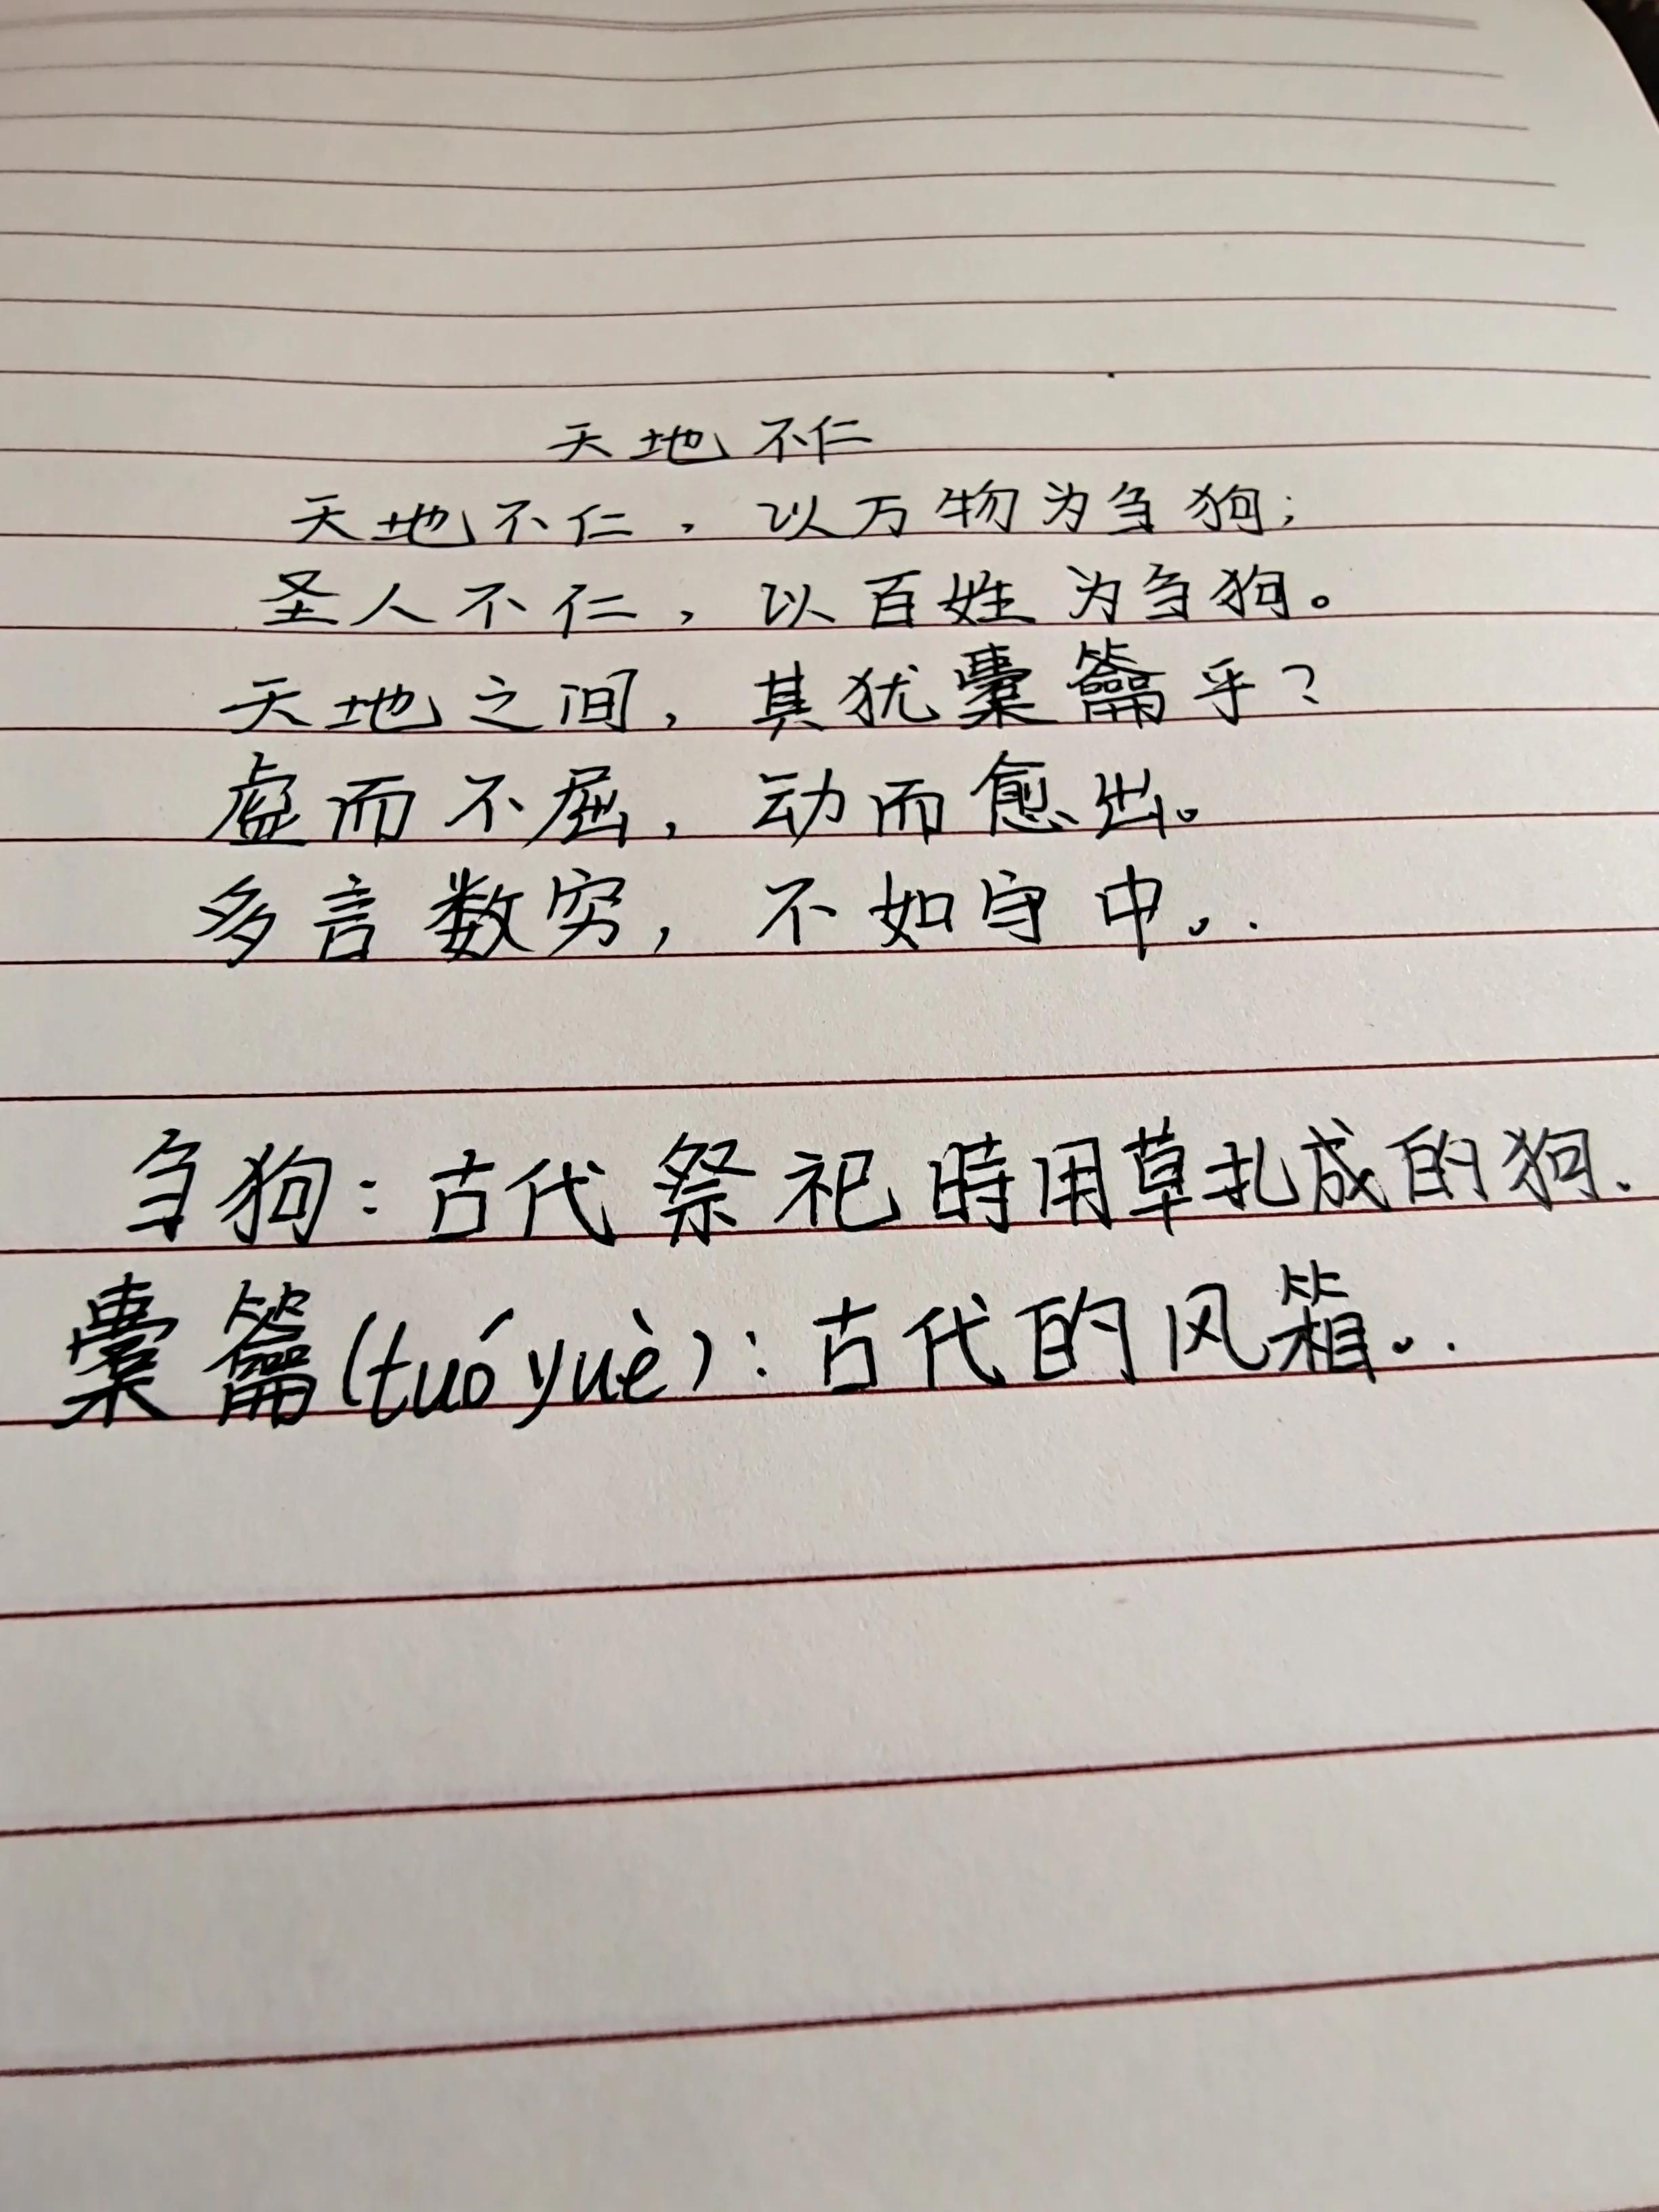 天地不仁
天地不仁，以万物为刍狗；
圣人不仁，以百姓为刍狗。
天地之间，其犹橐籥乎？
虚而不屈，动而愈出。
多言数穷，不如守中。.
刍狗：古代祭祀時用草扎成的狗.
橐籥(tuóyuè)：古代的风箱。.